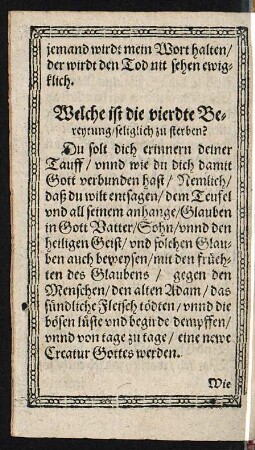 jemand wirdt mein Wort halten/
der wirdt den Tod nit sehen ewig-
klich.
Welche ist die vierdte Be-
reytung/seliglich zu sterben?
Du solt dich erinnern deiner
Tauff/ vnnd wie du dich damit
Gott verbunden hast/ Nemlich/
daß du wilt entsagen/ dem Teufel
vnd all seinem anhange/Glauben
in Gott Vatter/Sohn/vnnd den
heiligen Geist/ vnd solchen Glau-
ben auch beweysen/mit den früch-
ten des Glaubens/ gegen den
Menschen/den alten Adam/das
sündliche Fleisch tödten/vnnd die
bösen lüste vnd begirde dempffen/
vnnd von tage zu tage/ eine newe
Creatur Gottes werden.
Wie